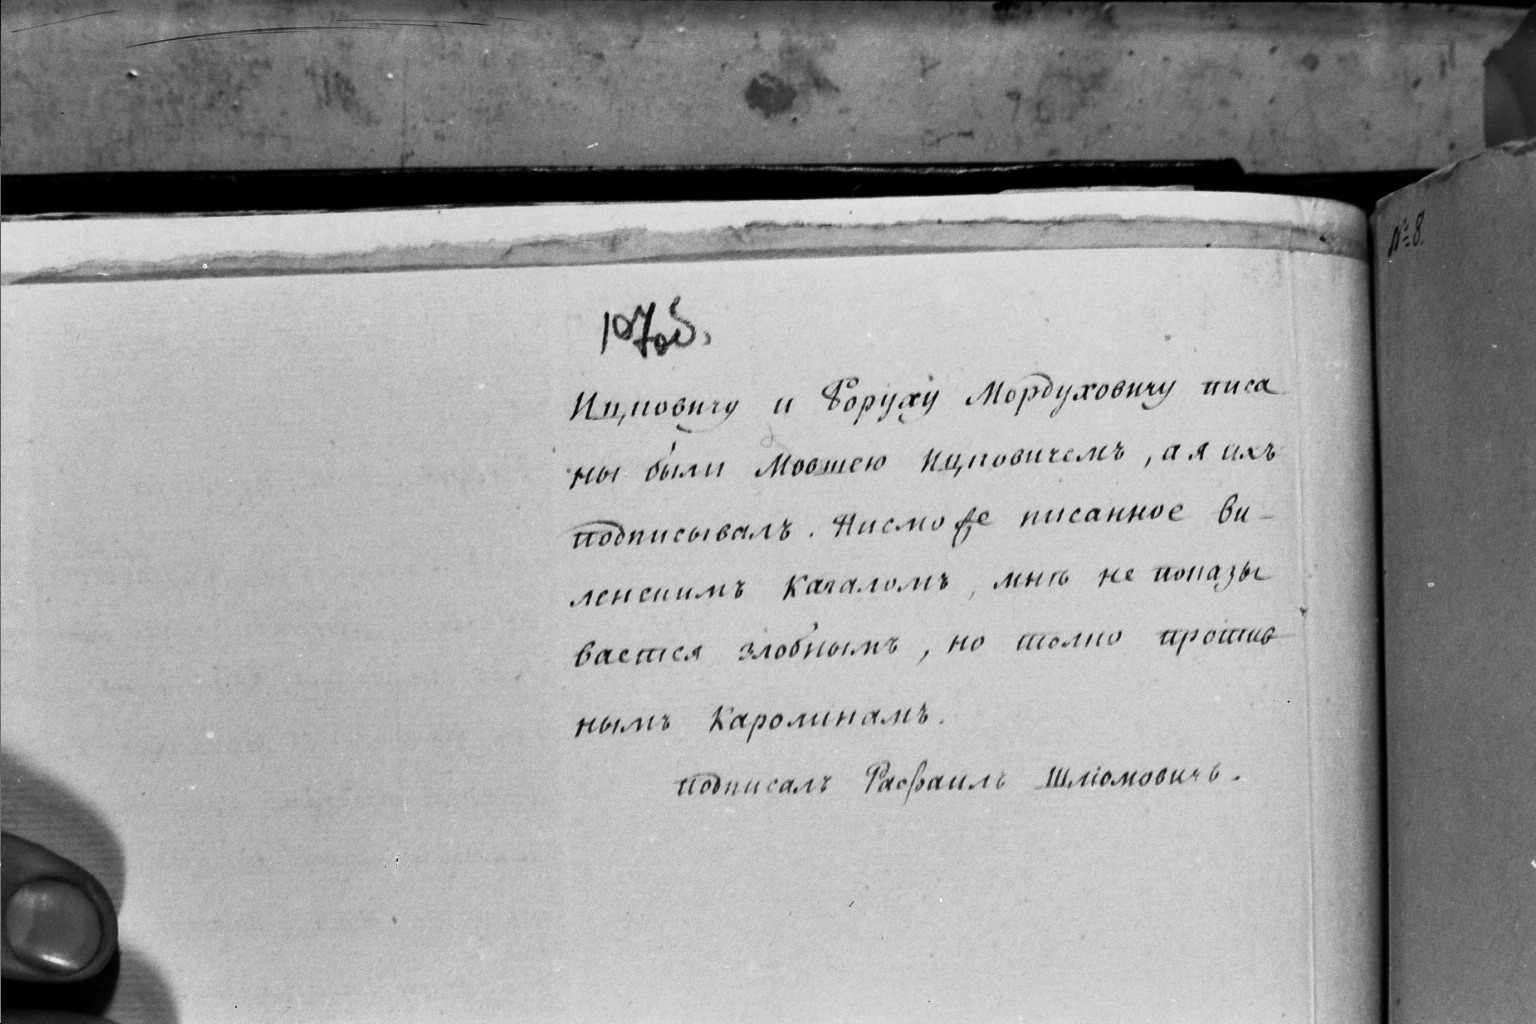 № 8.
107об.
Ицковичу и Боруху Мордуховичу писа
ны были Мовшею Ицковичемъ, а я ихъ
подписывалъ. Писмо же писанное Ви-
ленскимъ Кагаломъ, мнѣ не показы
вается злобнымъ, но толко против
нымъ Каролинамъ.
подписалъ Рафаилъ Шліомовичъ.